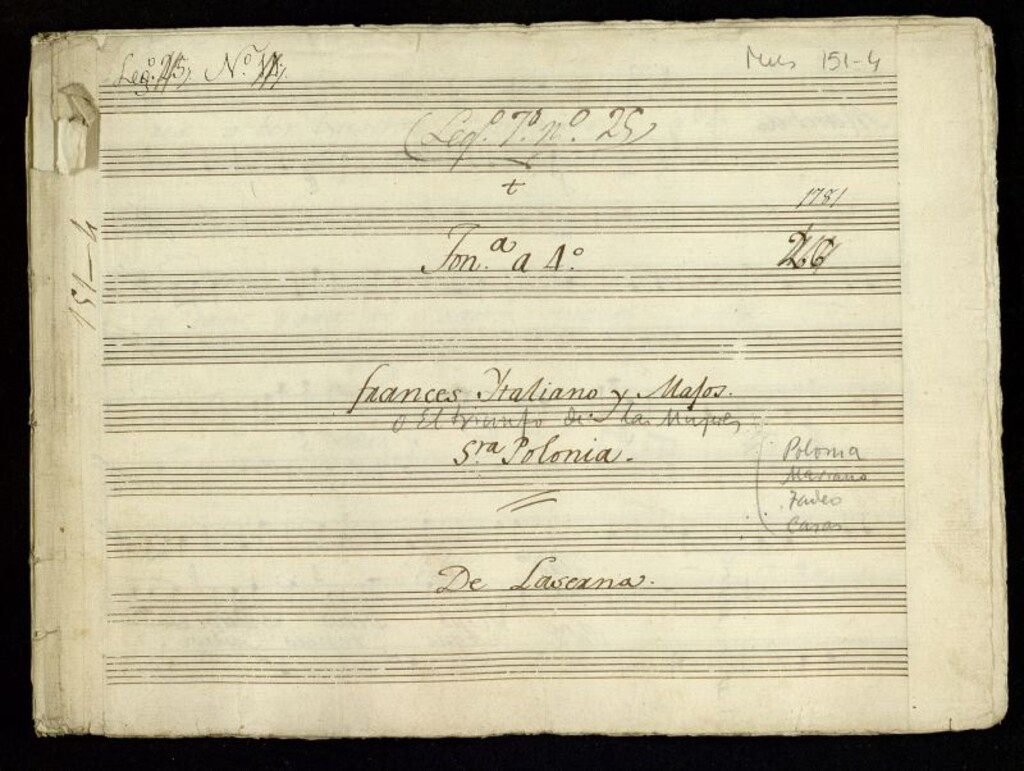 Leg.º 25, N.º
Mus 151-4
(Leg.º 7.º n.º 25)
+
1781
Ton.ª a 4.º
26
151-4
frances Ytaliano y Majos.
o El triunfo de las Mujeres
S.ra Polonia.
Polonia
Mariano
Tadeo
Casas
De Laserna.